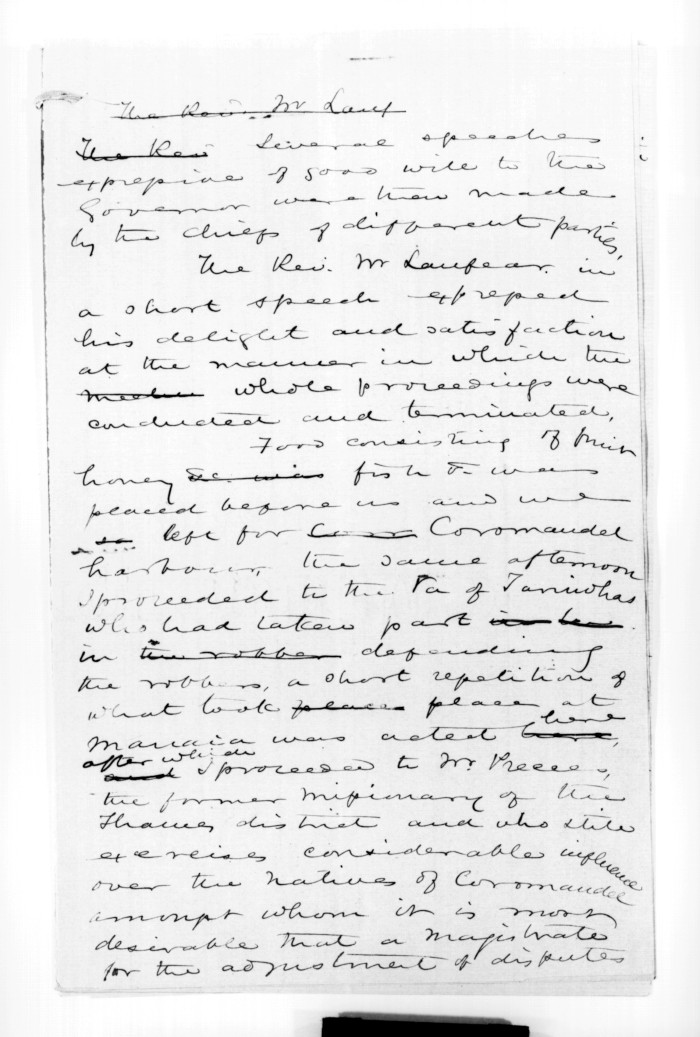 The Rev. Mr Lanf
The Rev Several speeches
expressive of good will to the
Governor were then made
by the chiefs of different parties,
The Rev. Mr Lanfear. in
a short speech expressed
his delight and satisfaction
at the manner in which the
whole proceedings were
conducted and terminated,
Food consisting of
honey &c. was fish &c was
placed before us and we
so left for Cor Coromandel
harbour, the same afternoon
I proceeded to the Pa of Taniwhas
who had taken part in
in the robber defending
the robbers, a short repetition of
what took place place at
Manaia was acted here, here
after which
and I proceeded to Mr. Preece,
the former Missionary of the
Thames district and who still
exercises considerable influence
over the Natives of Coromandel
amongst whom it is most
desirable that a Magistrate
for the adjustment of disputes